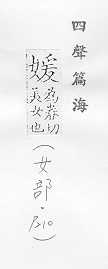 四聲篇海
媛 為眷切
美女也
(女部·P.10)